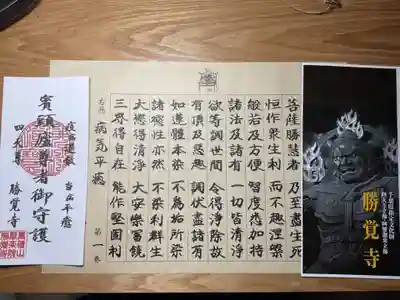 千葉県指定文化財
勝覚寺
菩薩勝慧者 乃至盡生死
恒作衆生利 而不趣涅槃
般若及方便 智度悉加持
諸法及諸有 一切皆清浄
欲等調世間 令得浄除故
有頂及悪趣 調伏盡諸有
如蓮體本染 不為垢所染
諸慾性亦然 不染利群生
大慾得清浄 大安楽富饒
三界得自在 能作堅固利
右為 病気平癒 第一巻
疫病退散 当病平癒
賓頭盧尊者御守護
四天尊 勝覚寺